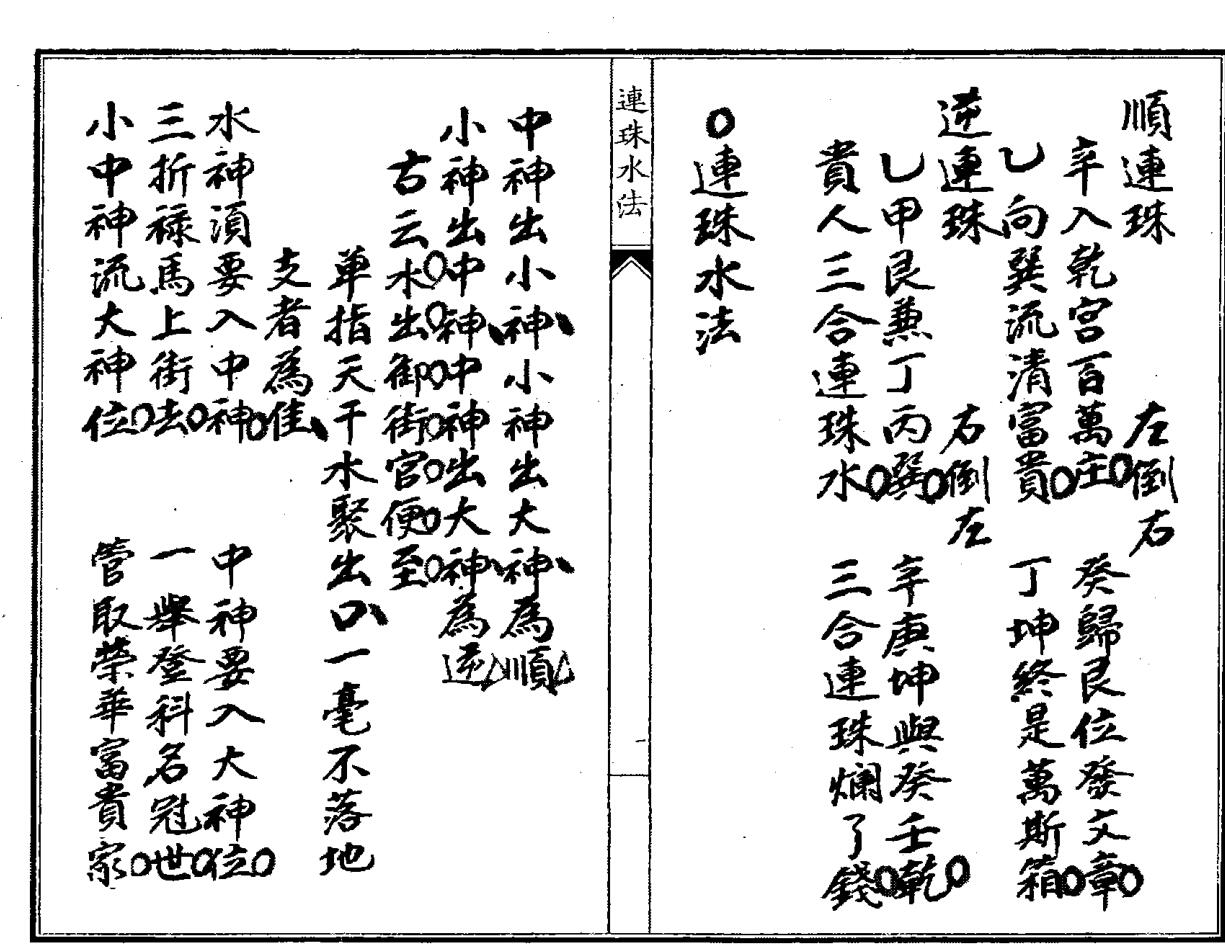 順連珠　左倒右
辛入乾宮百萬庄○　癸歸艮位發文章○
乙向巽流清富貴○　丁坤終是萬斯箱○
逆連珠　右倒左
乙甲艮兼丁丙巽○　辛庚坤與癸壬乾○
貴人三合連珠水○　三合連珠爛了錢○
○連珠水法
連珠水法
中神出小神、小神出大神、為順△
小神出中神、中神出大神、為逆△
古云水出御街官便至
單指天干水聚出口、一毫不落地
支者為佳、
水神須要入中神○　中神要入大神位○
三折祿馬上街去○　一舉登科名冠世○
小中神流大神位○　管取榮華富貴家○